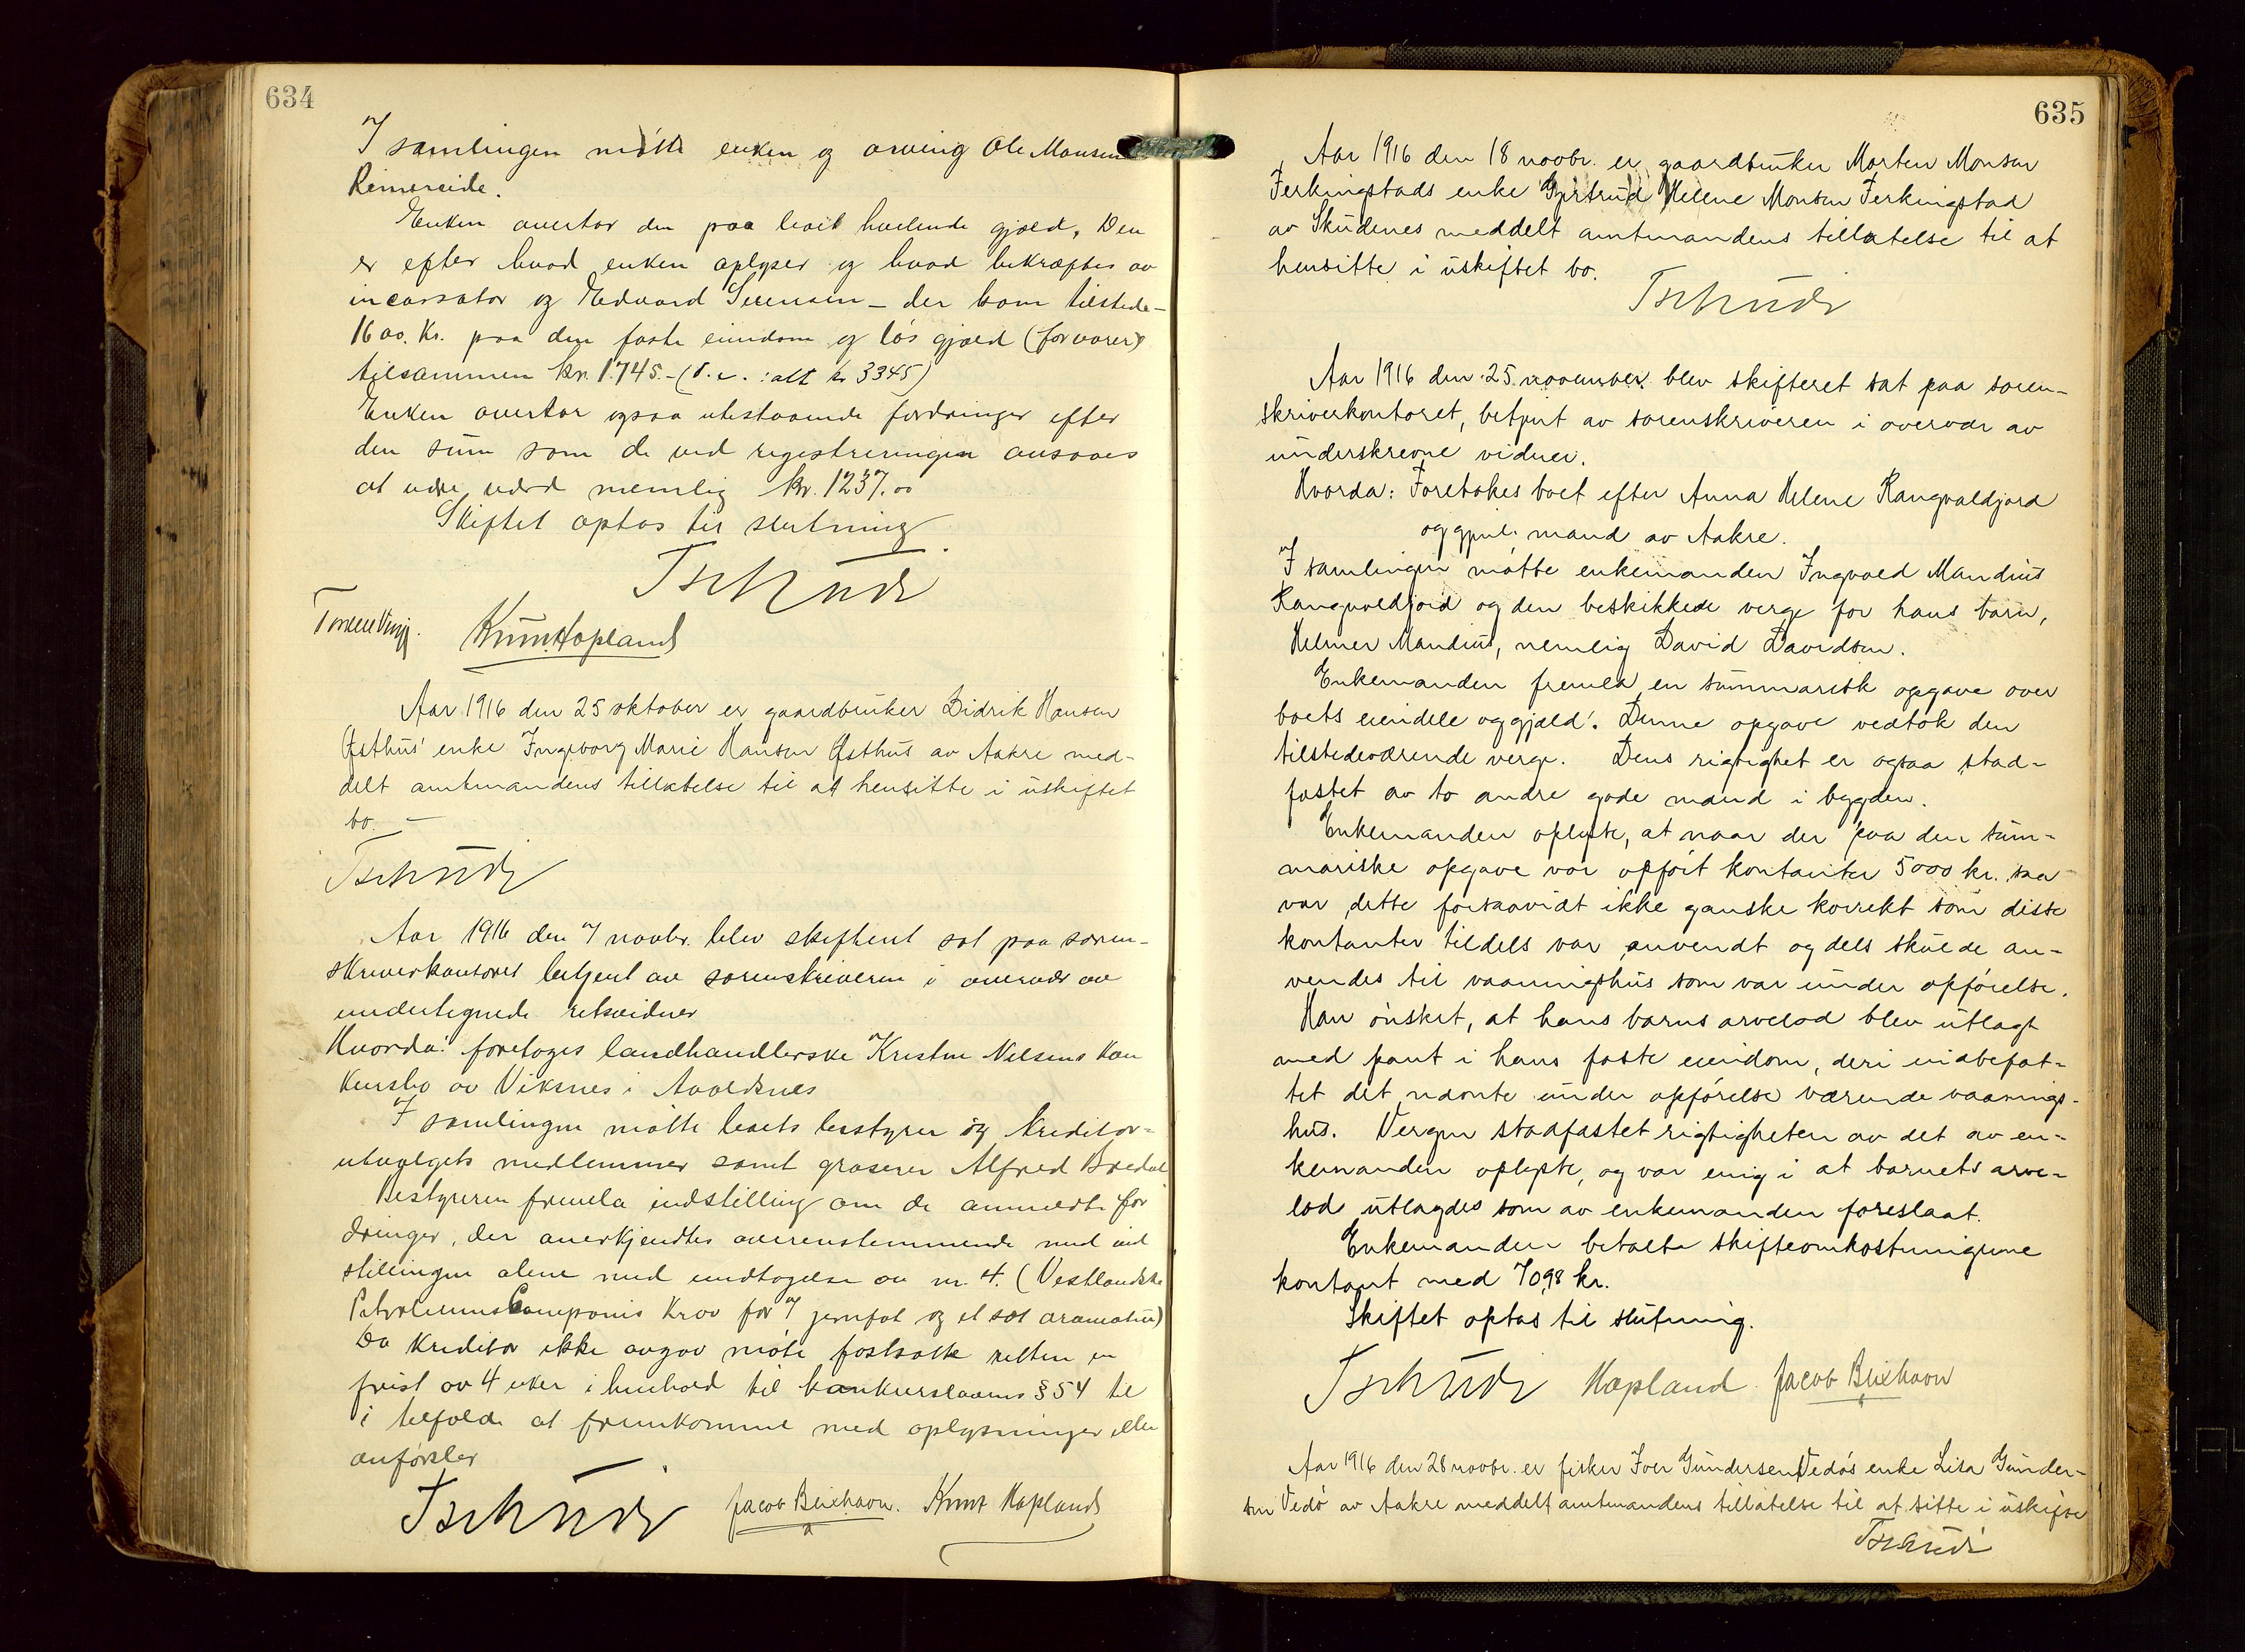 634
I samlingen møtte enken og arving Ole Monsen
Rimereide.
Enken overtar den paa boet hvilende gjæld. Den
er efter hvad enken oplyser og hvad bekræftes av
incassator og Edvard Sørensen – der kom tilstede –
1600. Kr. paa den faste eiendom og løs gjæld (for varer)
tilsammen kr. 1745.- (d.v.: alt kr 3345)
Enken overtar ogsaa utestaaende fordringer efter
den sum som de ved registreringen ansaaes
at være værd nemlig kr. 1237.00
Skiftet optas til slutning.
Tschudi
Knut Hopland
Aar 1916 den 25 oktober er gaardbruker Didrik Hansen
Østhus' enke Ingeborg Marie Hansen Østhus av Aakre med-
delt amtmandens tillatelse til at hensitte i uskiftet
bo. –
Tschudi
Aar 1916 den 7 novbr. blev skifteret sat paa soren-
skriverkontoret betjent av sorenskriveren i overvær av
undertegnede retsvidner
Hvorda: foretoges landhandlerske Kristine Nilsens kon
kursbo av Viksnes i Avaldsnes
I samlingen møtte boets bestyrer og kreditor-
utvalgets medlemmer samt grosserer Alfred Bredal
Bestyreren fremla indstilling om de anmeldte for
dringer, der anerkjendtes overensstemmende med ind
stillingen alene med undtagelse av nr. 4. (Vestlandske
Petroleums Companis krav for 7 jernfat og et sæt aramatur)
Da kreditor ikke avgav møte fastsatte retten en
frist av 4 uker i henhold til konkurslovens § 54 til
i tilfælde at fremkomme med oplysninger eller
anførsler
Tschudi Jacob Blixhavn. Knut Hopland
635
Aar 1916 den 18 novbr. er gaardbruker Morten Monsen
Ferkingstads enke Gjertrud Helene Monsen Ferkingstad
av Skudenes meddelt amtmandens tillatelse til at
hensitte i uskiftet bo.
Tschudi
Aar 1916 den 25. november blev skifteret sat paa soren-
skriverkontoret, betjent av sorenskriveren i overvær av
underskrevne vidner.
Hvorda: Foretokes boet efter Anna Helene Rangvaldjord
og gjenl. mand av Aakre.
I samlingen møtte enkemanden Ingvald Mandius
Rangvaldjord og den beskikkede verge for hans barn,
Helmer Mandius, nemlig David Davidsen.
Enkemanden fremla en summarisk opgave over
boets eiendele og gjæld. Denne opgave vedtok den
tilstedeværende verge. Dens rigtighet er ogsaa stad-
fæstet av to andre gode mænd i bygden.
Enkemanden oplyste, at naar der paa den sum-
mariske opgave var opført kontanter 5000 kr. saa
var dette forsaavidt ikke ganske korrekt som disse
kontanter tildels var anvendt og dels skulde an-
vendes til vaaningshus som var under opførelse.
Han ønsket, at hans barns arvelod blev utlagt
med pant i hans faste eiendom, deri indbefat-
tet det nævnte under opførelse værende vaanings-
hus. Vergen stadfæstet rigtigheten av det av en-
kemanden oplyste, og var enig i at barnets arve-
lod utlagdes som av enkemanden foreslaat.
Enkemanden betalte skifteomkostningerne
kontant med 70,98 kr.
Skiftet optas til slutning.
Tschudi Hopland Jacob Blixhavn
Aar 1916 den 28 novbr. er fisker Iver Gundersen Vedøs enke Lisa Gunder-
sen Vedø av Aakre meddelt amtmandens tillatelse til at sitte i uskifte
Tschudi